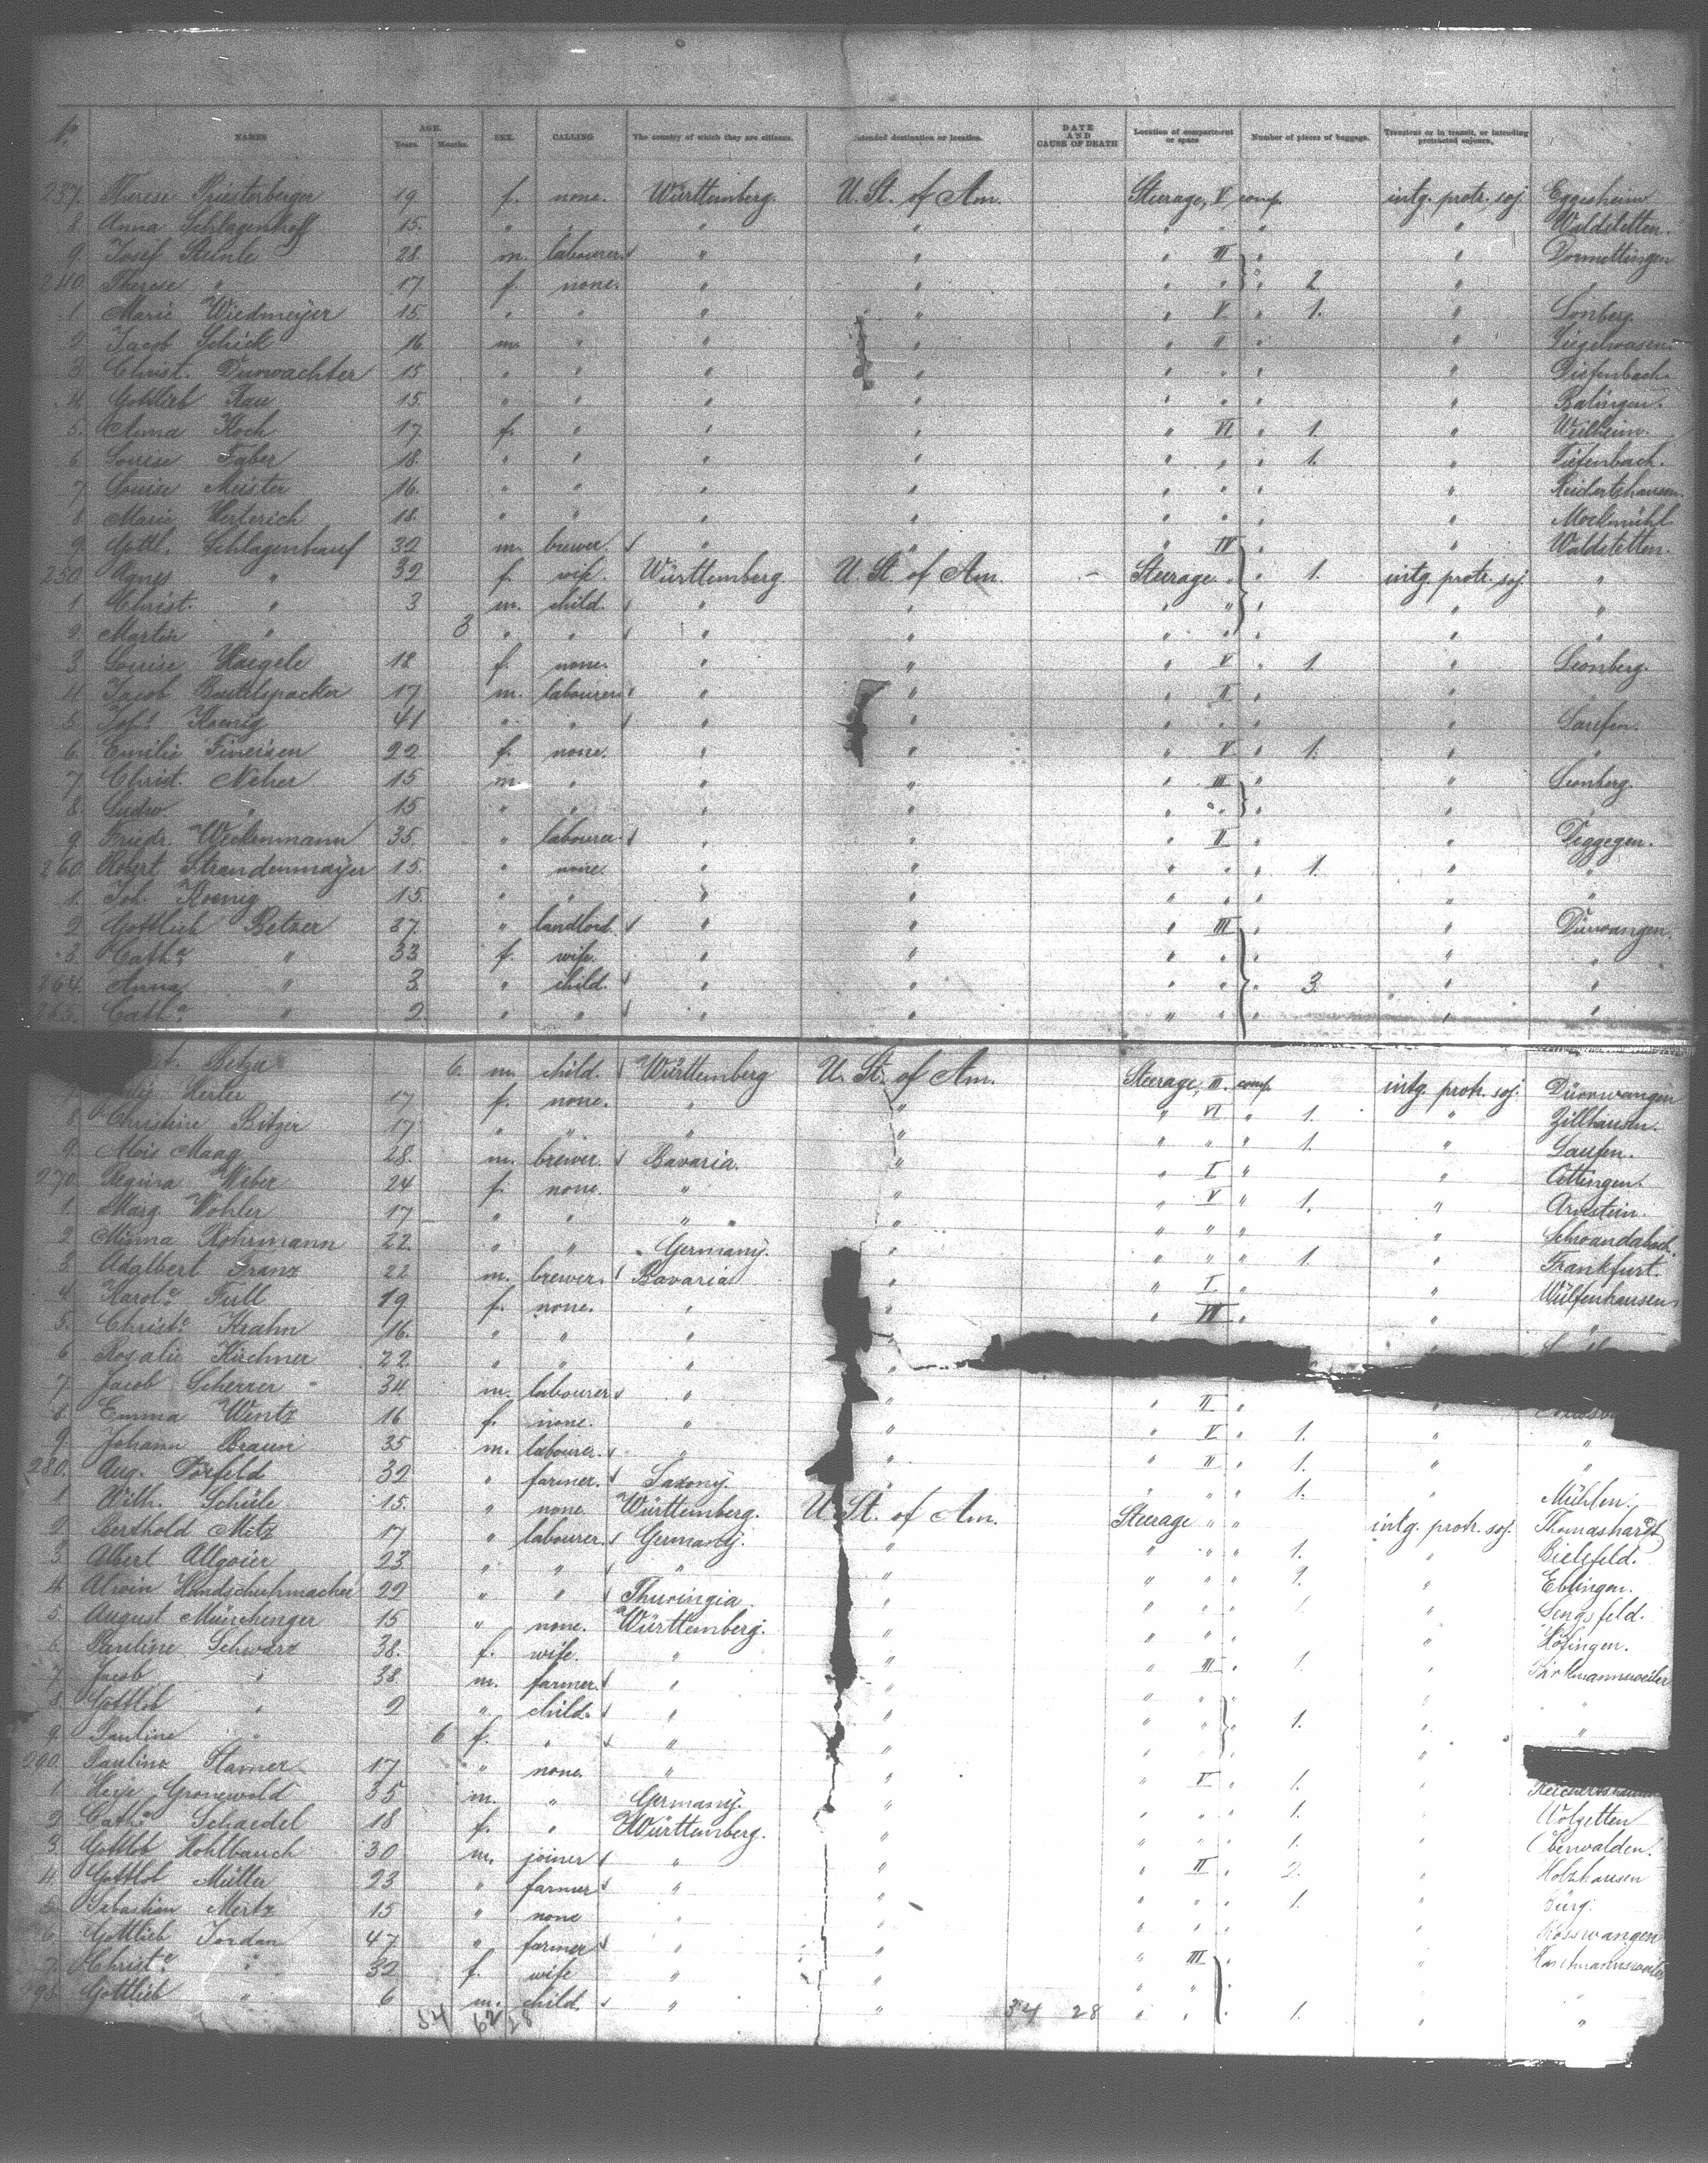 No. NAMES AGE. Years. Months. SEX. CALLING The country of which they are citizens. Intended destination or location. DATE AND CAUSE OF DEATH Location of compartment or space Number of pieces of baggage. Transient or in transit, or intruding protracted sojourn.
237. Therese Priesterberger 19. f. none. Württemberg. U. St. of Am. Steerage, V comp. intg. protr. soj. Eggesheim
8 Anna Schlagenhoff 15. " " " " " " " Waldstetten.
9. Josef Steinle 28. m. labourer. " " " III " " Dormettingen
240. Therese " 17 f. none. " " " " " 2 "
1 Marie Wiedmeijer 15. " " " " " V " 1. " Lonberg.
2. Jacob Schick 16 m. " " " " II " "
3 Christ. Durwachter 15 " " " " " " " " Diefenbach.
4. Gottlieb Rau 15. " " " " " " " " Balingen.
5. Anna Koch 17 f. " " " " VI " 1. " Weilheim.
6 Louise Faber 18. " " " " " " " 1. " Tiefenbach.
7 Louise Meister 16. " " " " " " " " Reidertshausen.
8 Marie Herterich 18. " " " " " " " " Mockmühl
9. Gottl. Schlagenhauf 32 m. brewer. " " " IV " " Waldstetten.
250. Agnes " 32 f. wife. Württemberg U. St. of Am. Steerage " " 1. intg. protr. soj. "
1 Christ. " 3 m. child. " " " " " " "
2. Martin " 3 " " " " " " " " "
3 Louise Haegele 18 f. none. " " " V " 1. " Leonberg.
4. Jacob Beutelspacher 17 m. labourer. " " " II " "
5. Joh. Koenig 41 " " " " " " " " Laufen.
6. Emilie Fineisen 22 f. none. " " " V " 1. " "
7 Christ. Neher 15 m. " " " " III " " Leonberg.
8. Ludw. " 15 " " " " " " "
9. Friedr. Weckenmann 35. " labourer. " " " II " " Deggegen.
260. Robert Strandenmayer 15. " none. " " " " " 1. " "
1. Joh. Koenig 15. " " " " " " " " "
2 Gottlieb Betzer 37. " landlord. " " " III " " Dürrwangen.
3. Cathe. " 33 f. wife. " " " " " " "
264. Anna " 3 " child. " " " " " 3. " "
265. Cathe. " 2. " " " " " " " " "
6. m. child. Württemberg U. St. of Am. Steerage, III. comp. intg. protr. soj. Dürrwangen
Herter 17 f. none. " " " VI " 1. " Zillhausen.
8 Christine Bitzer 17 " " " " " " " 1. " Laufen.
9. Alois Maag 28. m. brewer. Bavaria. " " I " " Ottingen.
270. Regina Weber 24 f. none. " " " V " 1. " Arnstein.
1. Marg. Wohler 17 " " " " " " " "
2 Minna Rohrmann 22. " " Germany. " " " " 1. " Frankfurt.
3. Adalbert Franz 22 m. brewer. Bavaria " " I " " Wülfenhausen
4. Karole. Full 19 f. none. " " " VII " " "
5. Christe. Krahn 16. " " " "
6 Rosalie Kirchner 22 " " " "
7. Jacob Scherrer 34 m. labourer. " " " II " "
8. Emma Wentz 16 f. none. " " " V " 1. " "
9. Johann Braun 35 m. labourer. " " " II " 1. " "
280. Aug. Dörfeld 32 " farmer. Saxony. " " " " 1. Mühlen.
1 Wilh. Schüle 15. " none. Württemberg. U. St. of Am. Steerage " " intg. protr. soj. Thomashardt
2. Berthold Metz 17 " labourer. Germany. " " " " 1. " Bielefeld.
3 Albert Allgoier 23 " " " " " " " 2. " Ebingen.
4. Alwin Handschuhmacher 22 " " Thuringia. " " " " 1. " Lengsfeld.
5. August Münchenger 15 " none. Württemberg. " " " " " Höfingen.
6. Pauline Schwarz 38. f. wife. " " " III " 1. " Birkmannsweiler
7. Jacob " 38 m. farmer. " " " " " "
8. Gottlob " 2 " child. " " " " " 1. " "
9. Pauline " 6 f. " " " " " "
290. Pauline Hamer 17 " none. " " " V " 1. "
1 Heije Gronewold 35 m. " Germany. " " " " 1. " Wolgetten
2 Cathe. Schaedel 18 f. " Württemberg. " " " " 1. " Oberwalden.
3. Gottlob Kohlbauch 30 m. joiner " " " II " 2. " Holzhausen
4. Gottlob Müller 23 " farmer " " " " " 1. " Bürg.
5. Sebastian Mertz 15 " none " " " " " " Rosswangen
6. Gottlieb Jordan 47. " farmer " " " III " "
7. Christe. " 32 f. wife " " " " " " "
298. Gottlieb " 6 m. child. " " " " " 1. " "
54 62 28 34 28